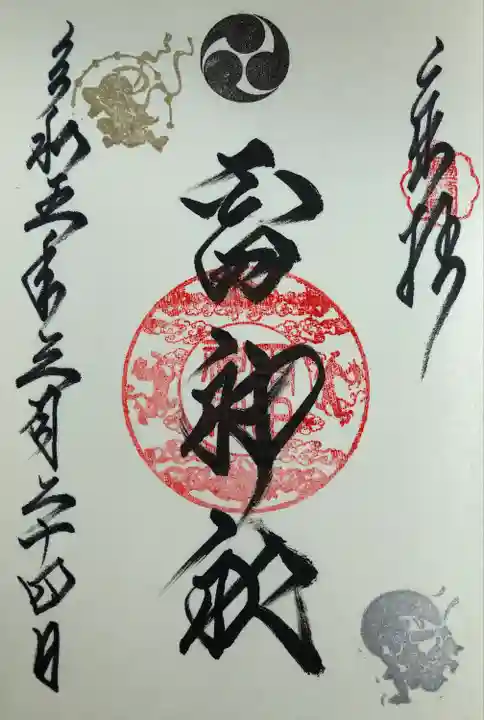 奉拝
雷神社
令和五年六月二十四日